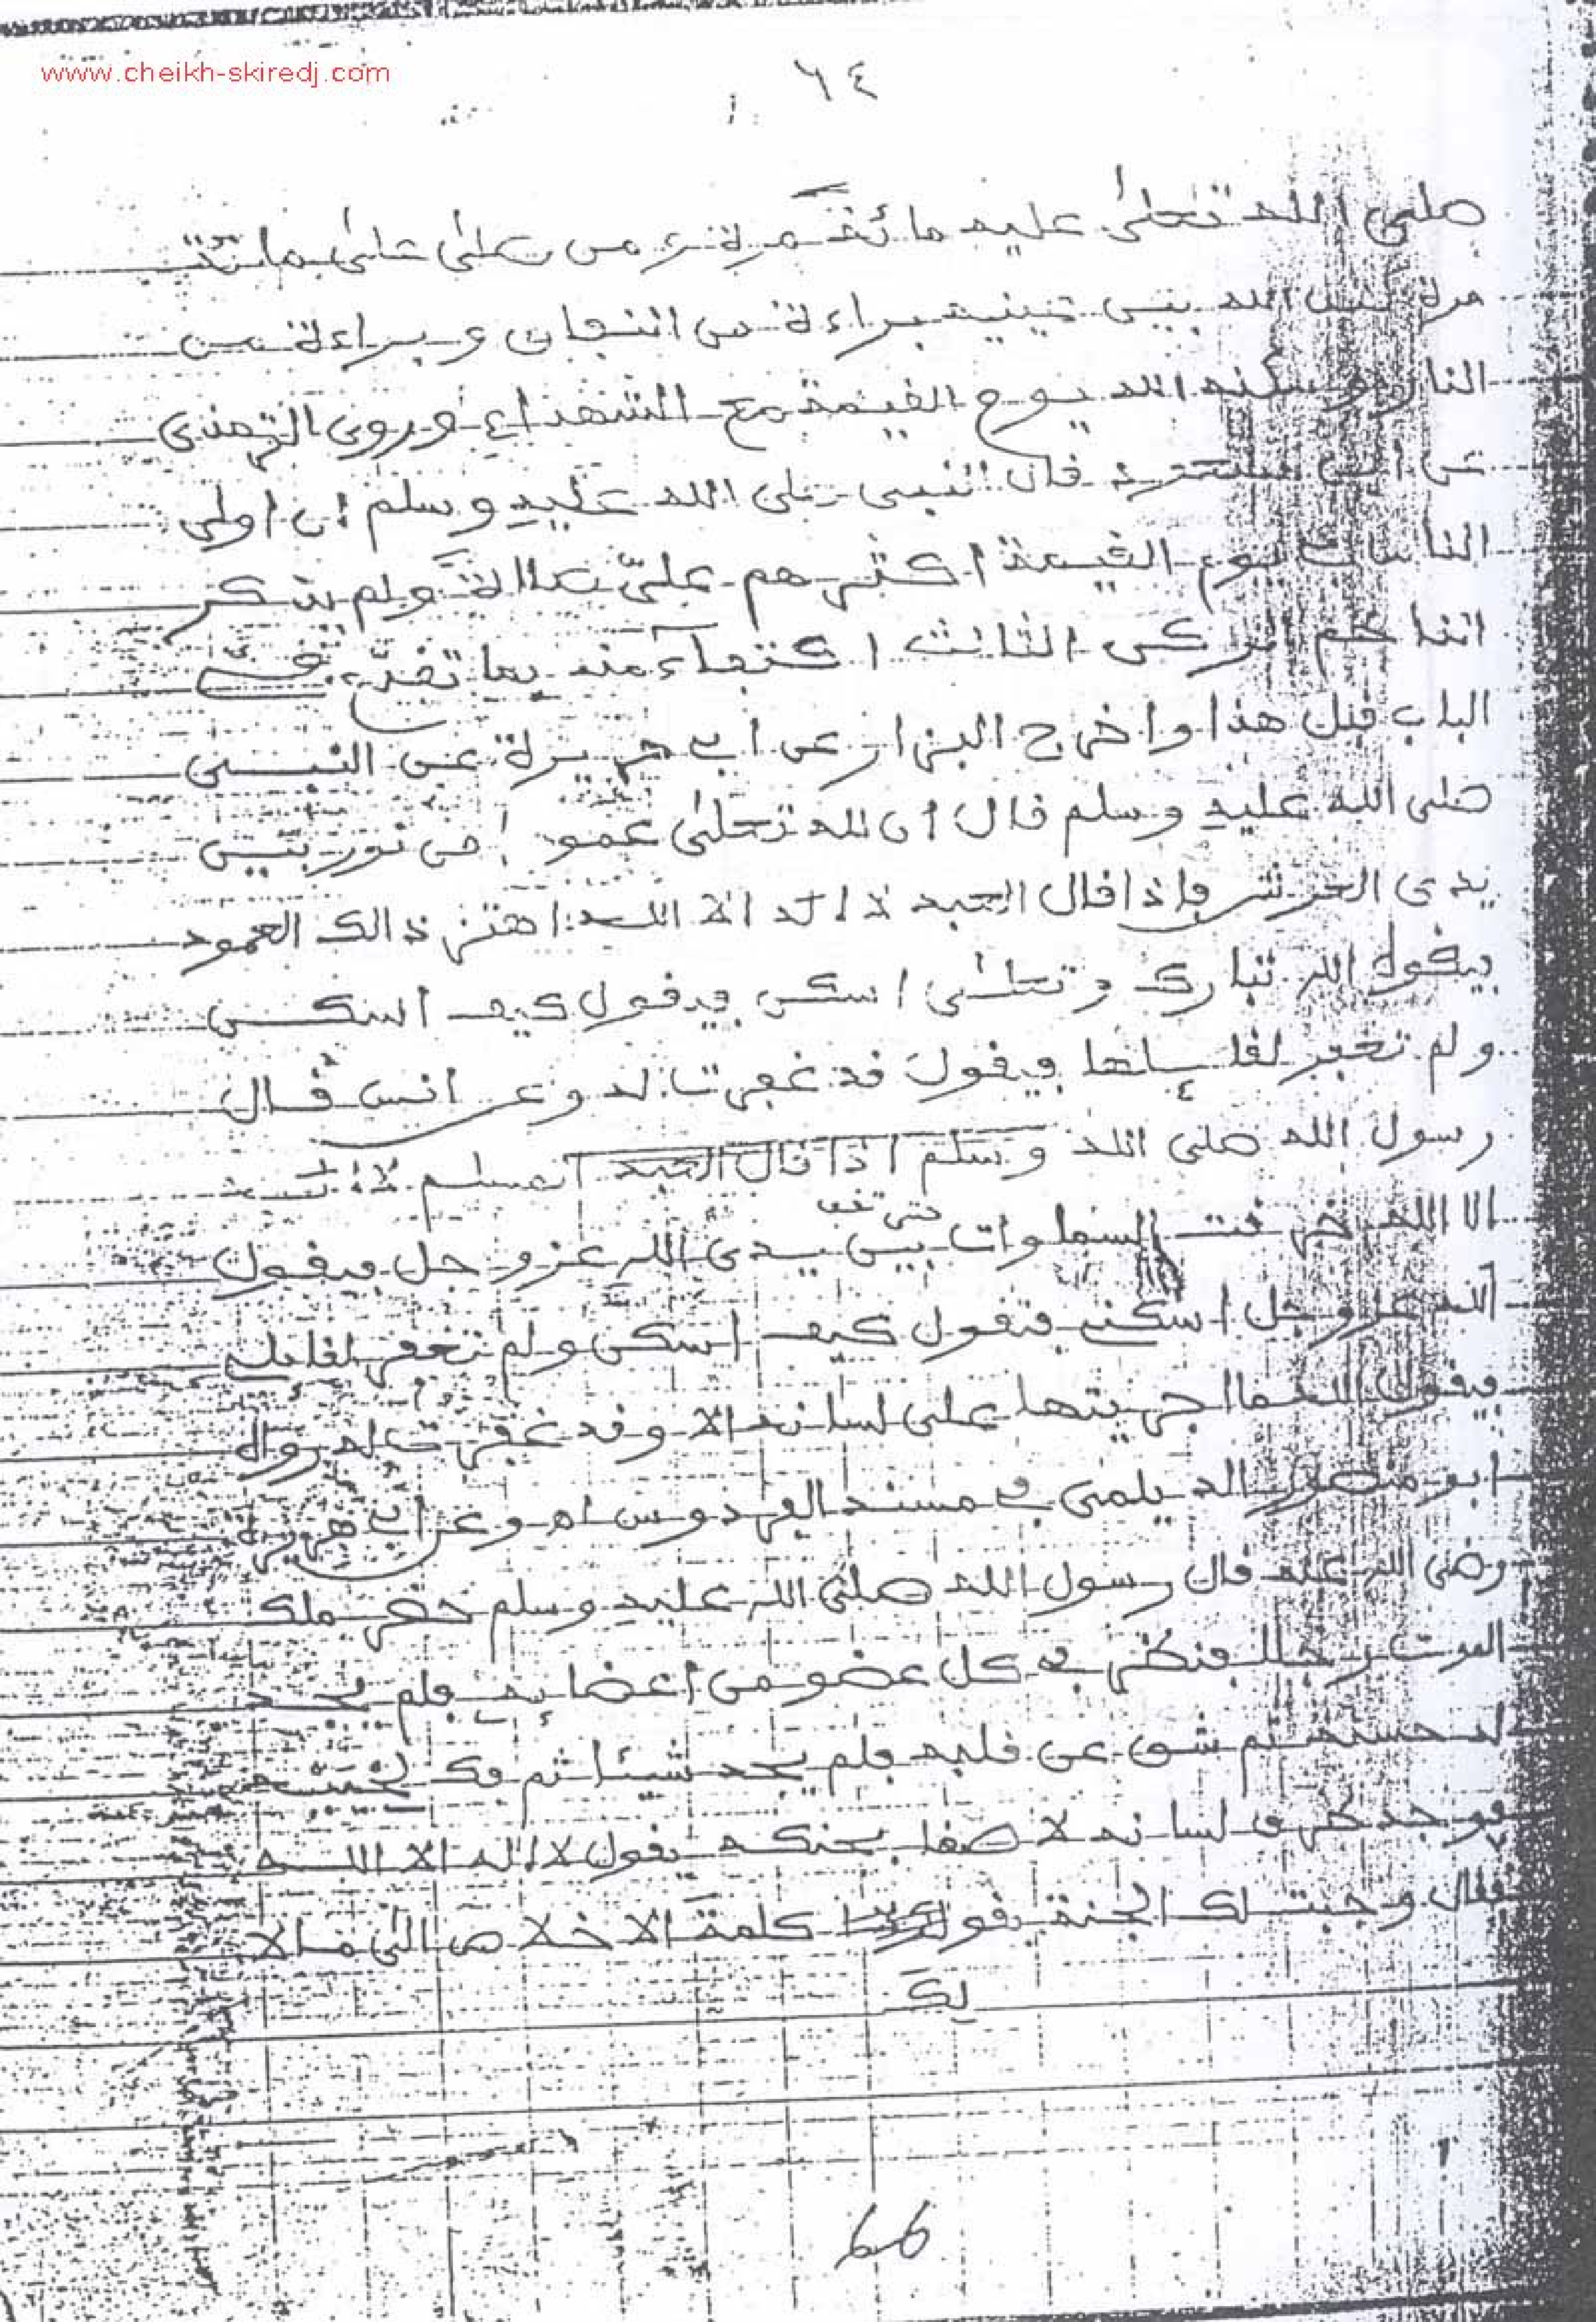 www.cheikh-skiredj.com
٦٤
صلى الله تعلى عليه مائة مرة ومن صلى على مائة
مرة كتب الله بين عينيه براءة من النفاق وبراءة من
النار واسكنه الله يوم القيمة مع الشهداء وروى الترمذى
قال النبى صلى الله عليه وسلم ان اولى
الناس بى يوم القيمة اكثرهم على صلاة ولم يذكر
الناظم الركن الثالث اكتفاء منه بما تقدم فى
الباب قبل هذا واخرج البزار عن ابى هريرة عن النبى
صلى الله عليه وسلم قال ان لله تعلى عمودا من نور بين
يدى العرش فاذا قال العبد لا اله الا الله اهتز ذالك العمود
فيقول الله تبارك وتعلى اسكن فيقول كيف اسكن
ولم تغفر لقايلها فيقول قد غفرت له وعن انس قال
رسول الله صلى الله وسلم اذا قال العبد المسلم لا اله
الا الله خرقت السماوات حتى تقف بين يدى الله عز وجل فيقول
الله عز وجل اسكنى فتقول كيف اسكن ولم تغفر لقايلى
فيقول الله ما اجريتها على لسانه الا وقد غفرت له رواه
ابو منصور الديلمى فى مسند الفردوس اه وعن ابى هريرة
رضى الله عنه قال رسول الله صلى الله عليه وسلم حضر ملك
الموت رجلا فنظر فى كل عضو من اعضايه فلم يجد
له حسنة ثم شق عن قلبه فلم يجد شيئا ثم فك لحييه
فوجد طرف لسانه لاصقا بحنكه يقول لا اله الا الله
فقال وجبت لك الجنة بقول كلمة الاخلاص الى مالا
يكـ
66